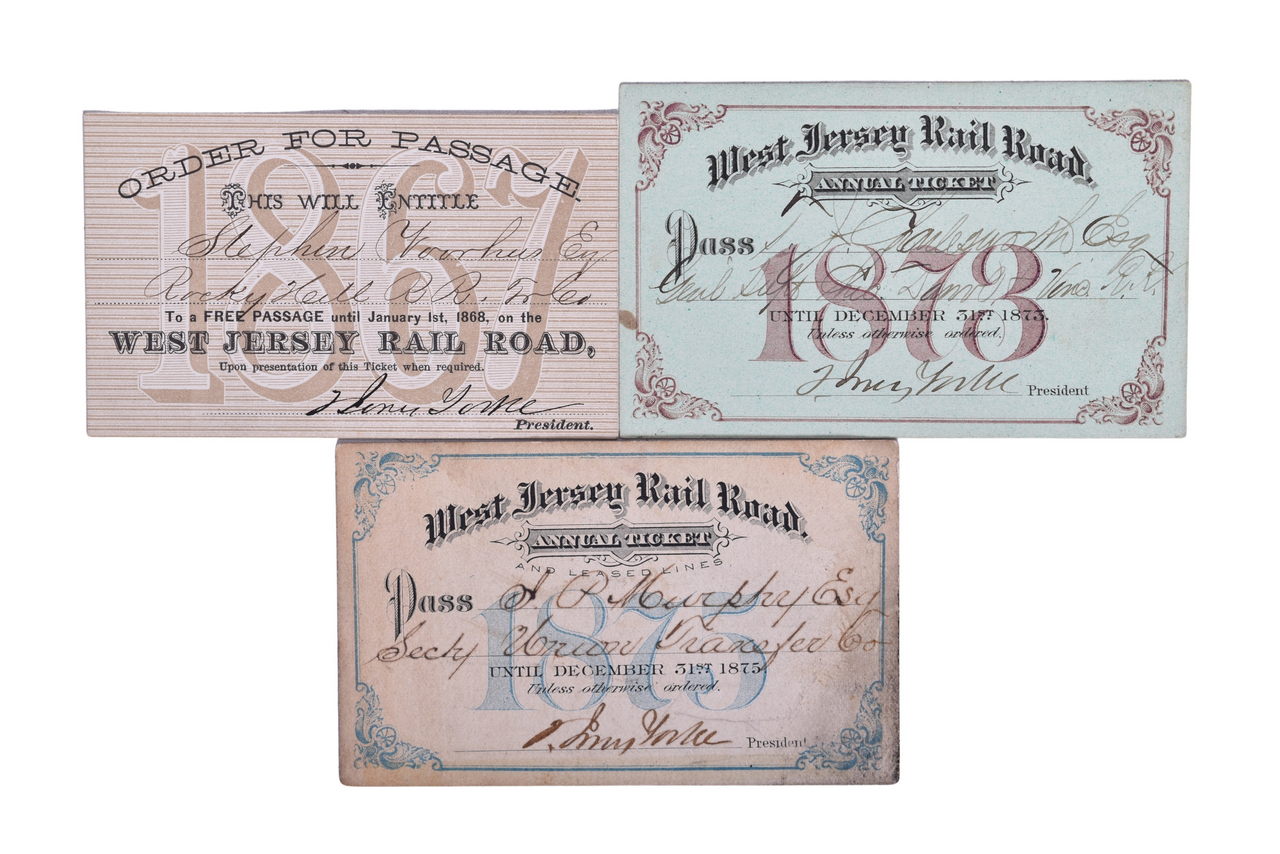 ORDER FOR PASSAGE.
1867
THIS WILL ENTITLE
Stephen Voorhees Esq
Rocky Hill R. R. Tr Co
To a FREE PASSAGE until January 1st, 1868, on the
WEST JERSEY RAIL ROAD,
Upon presentation of this Ticket when required.
President.
West Jersey Rail Road.
ANNUAL TICKET
Pass Esq
1873
UNTIL DECEMBER 31ST 1873.
Unless otherwise ordered.
President
West Jersey Rail Road.
ANNUAL TICKET
AND LEASED LINES.
Pass Murphy Esq
1875
Secty Union Transfer Co
UNTIL DECEMBER 31ST 1875.
Unless otherwise ordered.
President